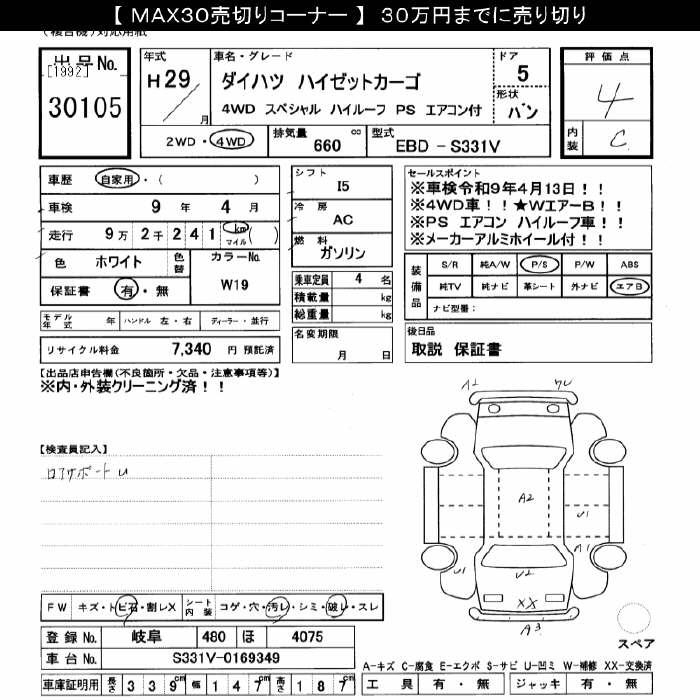 【 MAX30売切りコーナー 】 30万円までに売り切り
(複合機)対応用紙
出品No.
[1992]
30105
年式
H29
月
車名・グレード
ダイハツ ハイゼットカーゴ
4WD スペシャル ハイルーフ PS エアコン付
ドア
5
形状
バン
2WD・4WD
排気量
660 cc
型式
EBD - S331V
評価点
4
内装
C
車歴 自家用・( )
車検 9 年 4 月
走行 9万 2千 2 4 1 km マイル ( )
色 ホワイト
色替
カラーNo.
W19
保証書 有・無
モデル年式 年 ハンドル 左・右 ディーラー・並行
リサイクル料金 7,340 円 預託済
シフト
I5
冷房
AC
燃料
ガソリン
乗車定員 4 名
積載量 kg
総重量 kg
名変期限
月 日
セールスポイント
※車検令和9年4月13日!!
※4WD車!!★WエアーB!!
※PS エアコン ハイルーフ車!!
※メーカーアルミホイール付!!
装備品
S/R 純A/W P/S P/W ABS
純TV 純ナビ 革シート 外ナビ エアB
ナビ型番:
後日品
取説 保証書
【出品店申告欄(不良箇所・欠品・注意事項等)】
※内・外装クリーニング済!!
【検査員記入】
ロアサポートU
A1
A2
U1
A1
U1
U2
XX
A3
スペア
FW キズ・トビ石・割レX
シート内装 コゲ・穴・汚レ・シミ・破レ・スレ
登録 No. 岐阜 480 ほ 4075
車台 No. S331V-0169349
車庫証明用 長さ 339cm 幅 147cm 高さ 187cm
A-キズ C-腐食 E-エクボ S-サビ U-凹ミ W-補修 XX-交換済
工具 有・無 ジャッキ 有・無